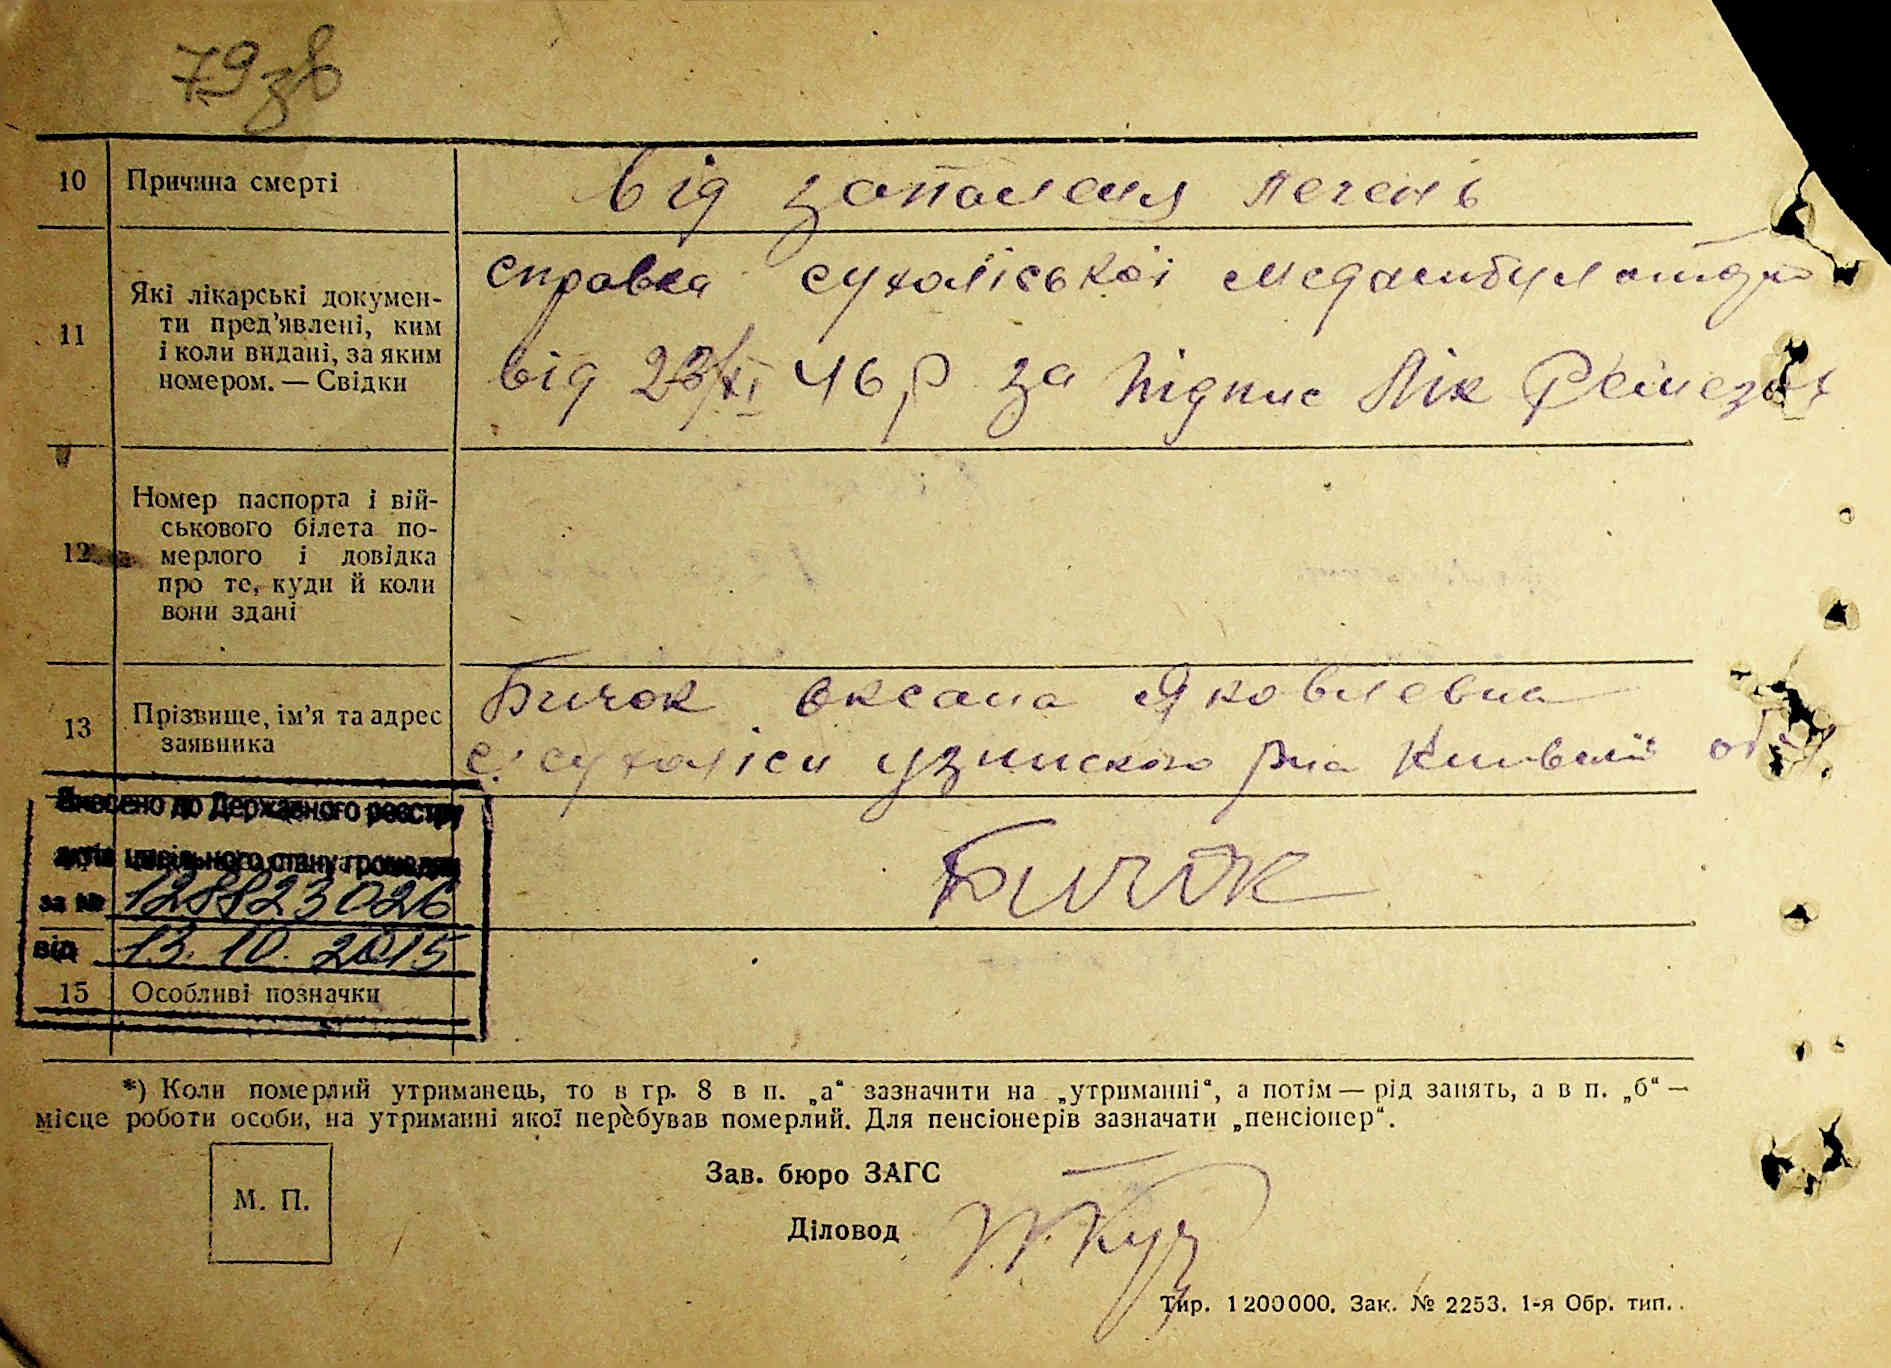 79зв
10 Причина смерті від запаленя легень
11 Які лікарські докумен-
ти пред’явлені, ким
і коли видані, за яким
номером. — Свідки
справка сухоліської медамбулаторі
від 23/XI 46 р за підпис Лік
12 Номер паспорта і вій-
ськового білета по-
мерлого і довідка
про те, куди й коли
вони здані
13 Прізвище, ім’я та адрес
заявника
Бичок Оксана Яковлевна
с. сухоліси узинского рна Київської обл
Внесено до Державного реєстру
актів цивільного стану громадян
за № 128823026
від 13.10.2015
Бичок
15 Особливі позначки
*) Коли померлий утриманець, то в гр. 8 в п. „а“ зазначити на „утриманні“, а потім — рід занять, а в п. „б“ —
місце роботи особи, на утриманні якої перебував померлий. Для пенсіонерів зазначати „пенсіонер“.
М. П.
Зав. бюро ЗАГС
Діловод
Тир. 1200000. Зак. № 2253. 1-я Обр. тип.